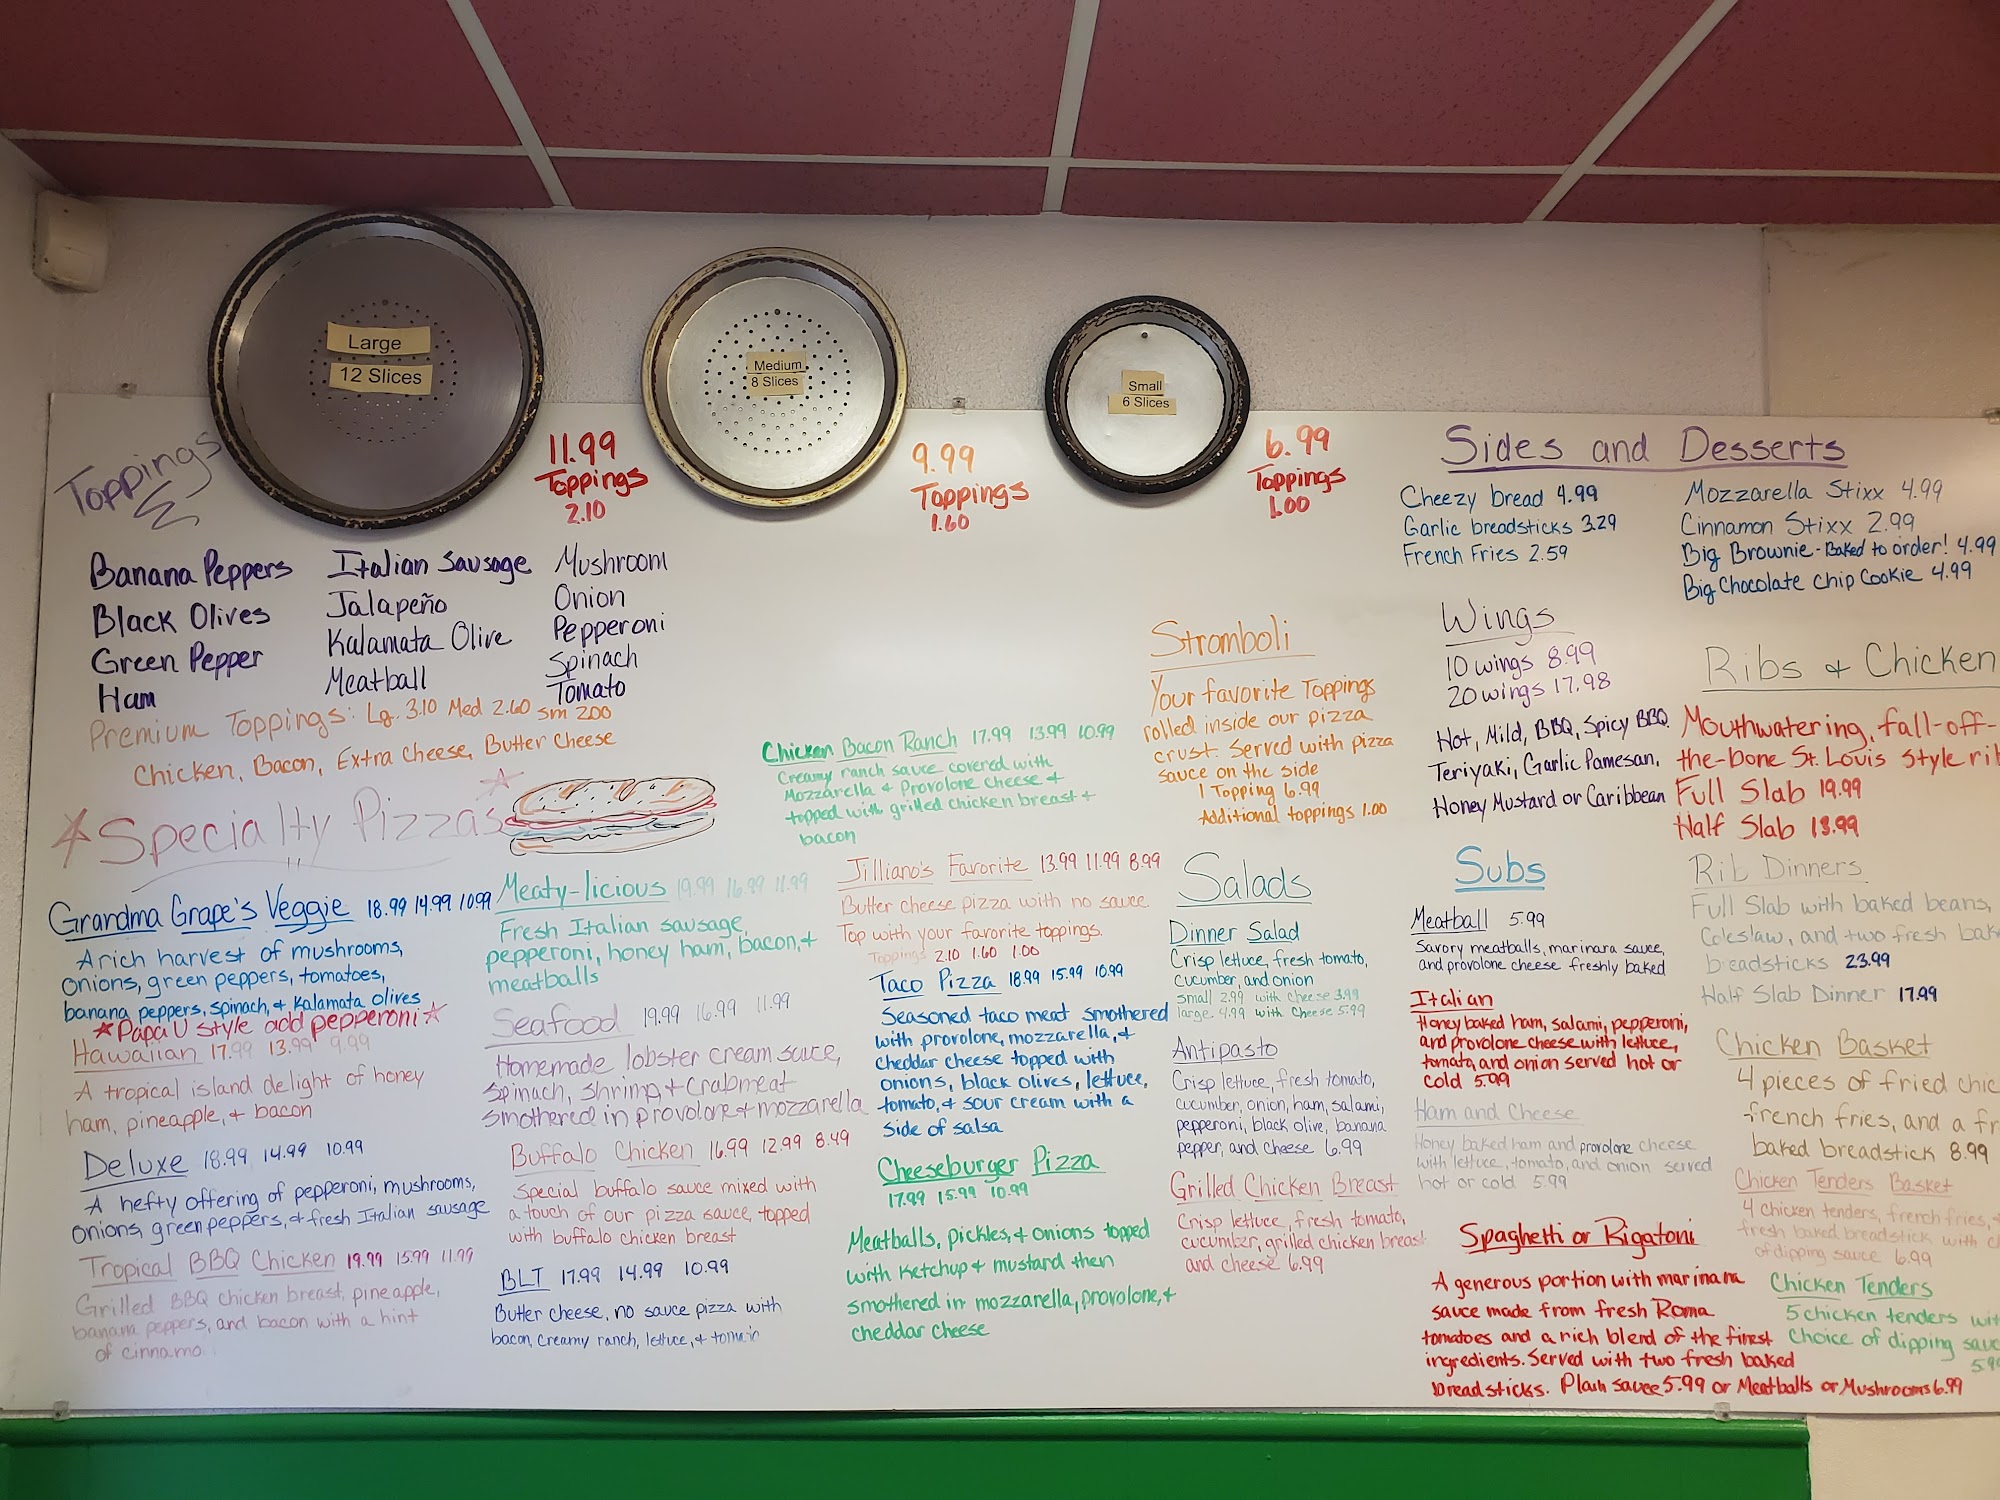 Large
12 Slices
Medium
8 Slices
Small
6 Slices
Toppings
11.99
Toppings
2.10
9.99
Toppings
1.60
6.99
Toppings
1.00
Banana Peppers
Black Olives
Green Pepper
Ham
Italian Sausage
Jalapeño
Kalamata Olive
Meatball
Mushroom
Onion
Pepperoni
Spinach
Tomato
Premium Toppings: Lg. 3.10 Med 2.60 Sm 2.00
Chicken, Bacon, Extra Cheese, Butter Cheese
Specialty Pizzas
Grandma Grape's Veggie 18.99 14.99 10.99
A rich harvest of mushrooms,
onions, green peppers, tomatoes,
banana peppers, spinach, + Kalamata olives
Papa U style add pepperoni
Hawaiian 17.99 13.99 9.99
A tropical island delight of honey
ham, pineapple, + bacon
Deluxe 18.99 14.99 10.99
A hefty offering of pepperoni, mushrooms,
onions, green peppers, + fresh Italian sausage
Tropical BBQ Chicken 19.99 15.99 11.99
Grilled BBQ chicken breast, pineapple,
banana peppers, and bacon with a hint
of cinnamo
Meaty-licious 19.99 16.99 11.99
Fresh Italian sausage,
pepperoni, honey ham, bacon, +
meatballs
Seafood 19.99 16.99 11.99
Homemade lobster cream sauce,
spinach, shrimp, + crabmeat
smothered in provolone + mozzarella
Buffalo Chicken 16.99 12.99 8.49
Special buffalo sauce mixed with
a touch of our pizza sauce, topped
with buffalo chicken breast
BLT 17.99 14.99 10.99
Butter cheese, no sauce pizza with
bacon, creamy ranch, lettuce, + tomato
Chicken Bacon Ranch 17.99 13.99 10.99
Creamy ranch sauce covered with
Mozzarella + Provolone cheese +
topped with grilled chicken breast +
bacon
Jilliano's Favorite 13.99 11.99 8.99
Butter cheese pizza with no sauce.
Top with your favorite toppings.
Toppings 2.10 1.60 1.00
Taco Pizza 18.99 15.99 10.99
Seasoned taco meat smothered
with provolone, mozzarella, +
cheddar cheese topped with
onions, black olives, lettuce,
tomato, + sour cream with a
side of salsa
Cheeseburger Pizza
17.99 15.99 10.99
Meatballs, pickles, + onions topped
with ketchup + mustard then
smothered in mozzarella, provolone, +
cheddar cheese
Stromboli
Your favorite Toppings
rolled inside our pizza
crust. Served with pizza
sauce on the side
1 Topping 6.99
Additional toppings 1.00
Salads
Dinner Salad
Crisp lettuce, fresh tomato,
cucumber, and onion
small 2.99 with cheese 3.99
large 4.99 with cheese 5.99
Antipasto
Crisp lettuce, fresh tomato,
cucumber, onion, ham, salami,
pepperoni, black olive, banana
pepper, and cheese 6.99
Grilled Chicken Breast
Crisp lettuce, fresh tomato,
cucumber, grilled chicken breast
and cheese 6.99
Sides and Desserts
Cheezy bread 4.99
Garlic breadsticks 3.29
French Fries 2.59
Mozzarella Stixx 4.99
Cinnamon Stixx 2.99
Big Brownie - Baked to order! 4.99
Big Chocolate Chip Cookie 4.99
Wings
10 wings 8.99
20 wings 17.98
Hot, Mild, BBQ, Spicy BBQ
Teriyaki, Garlic Pamesan,
Honey Mustard or Caribbean
Ribs & Chicken
Mouthwatering, fall-off-
the-bone St. Louis Style rib
Full Slab 19.99
Half Slab 13.99
Rib Dinners
Full Slab with baked beans,
Coleslaw, and two fresh bak
breadsticks 23.99
Half Slab Dinner 17.99
Chicken Basket
4 pieces of fried chic
french fries, and a fr
baked breadstick 8.99
Chicken Tenders Basket
4 chicken tenders, french fries, +
fresh baked breadstick with c
of dipping sauce 6.99
Chicken Tenders
5 chicken tenders wit
choice of dipping sauc
5.99
Subs
Meatball 5.99
Savory meatballs, marinara sauce,
and provolone cheese freshly baked
Italian
Honey baked ham, salami, pepperoni,
and provolone cheese with lettuce,
tomato, and onion served hot or
cold 5.99
Ham and Cheese
Honey baked ham and provolone cheese
with lettuce, tomato, and onion served
hot or cold 5.99
Spaghetti or Rigatoni
A generous portion with marinara
sauce made from fresh Roma
tomatoes and a rich blend of the finest
ingredients. Served with two fresh baked
breadsticks. Plain sauce 5.99 or Meatballs or Mushrooms 6.99